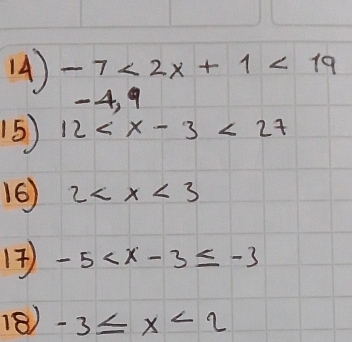 14) -7 < 2x + 1 < 19
-4,9
15) 12 < x - 3 < 27
16) 2 < x < 3
17) -5 < x - 3 ≤ -3
18) -3 ≤ x < 2